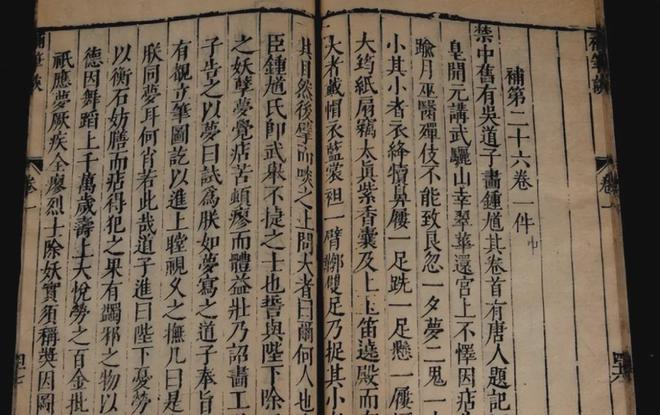 補筆談
卷一
補第二十六卷一件
禁中舊有吳道子畫鍾馗其卷首有唐人題記
皇開元講武驪山幸翠華還宮上不懌因痁
踰月巫醫殫伎不能致良忽一夕夢二鬼一
小其小者衣絳犢鼻屨一足跣一足懸一屨
大筠紙扇竊太真紫香囊及上玉笛遶殿而
大者戴帽衣藍裳袒一臂鞹雙足乃捉其小
其目然後擘而啖之上問大者曰爾何人也
臣鍾馗氏卽武舉不捷之士也誓與陛下除
之妖孽夢覺痁苦頓瘳而體益壯乃詔畫工
子告之以夢曰試為朕如夢寫之道子奉旨
有覩立筆圖訖以進上瞠視久之撫几曰是
朕同夢耳何肖若此哉道子進曰陛下憂勞
以衡石妨膳而痁得犯之果有蠲邪之物以
德因舞蹈上千萬歲壽上大悅勞之百金批
祇應夢厥疾全瘳烈士除妖實須稱獎因圖
補筆談
卷一